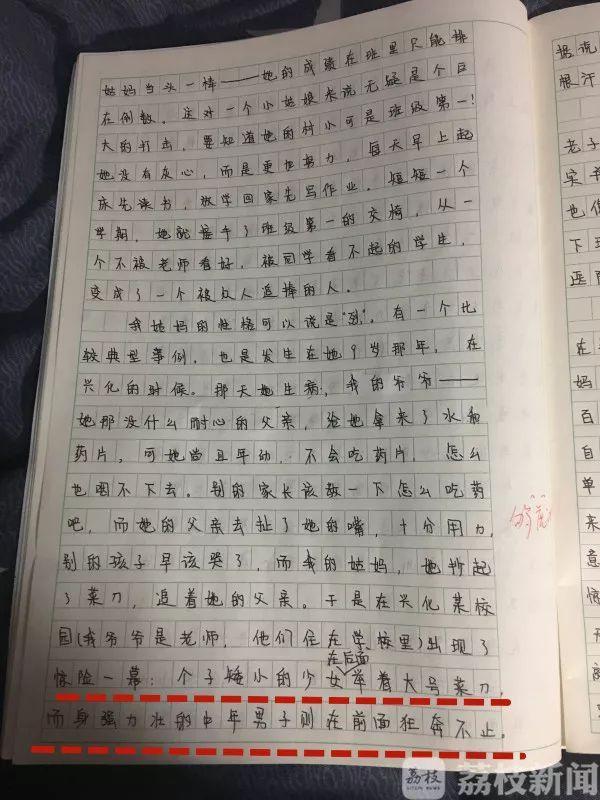 姑妈当头一棒——她的成绩在班里只能排
在倒数。这对一个小姑娘来说无疑是个巨
大的打击,要知道她的村小可是班级第一!
她没有灰心,而是更加努力,每天早上起
床先读书,放学回家先写作业。短短一个
学期,她就接手了班级第一的交椅,从一
个不被老师看好,被同学看不起的学生,
变成了一个被众人追捧的人。
我姑妈的性格可以说是“烈”。有一个比
较典型事例,也是发生在她9岁那年,在
兴化的时候。那天她生病,我的爷爷——
她那没什么耐心的父亲,给她拿来了水和
药片,可她尚且年幼,不会吃药片,怎么
也咽不下去。别的家长该教一下怎么吃药
吧,而她的父亲去扯了她的嘴,十分用力,
别的孩子早该哭了,而我的姑妈,她抄起
了菜刀,追着她的父亲。于是在兴化某校
园(我爷爷是老师,他们住在学校里)出现了
惊险一幕:个子矮小的少女在后面举着大号菜刀,
而身强力壮的中年男子则在前面狂奔不止。
据说
根汗
老子
也
下
在
妈
百
自
单
来
意
荔枝
荔枝新闻